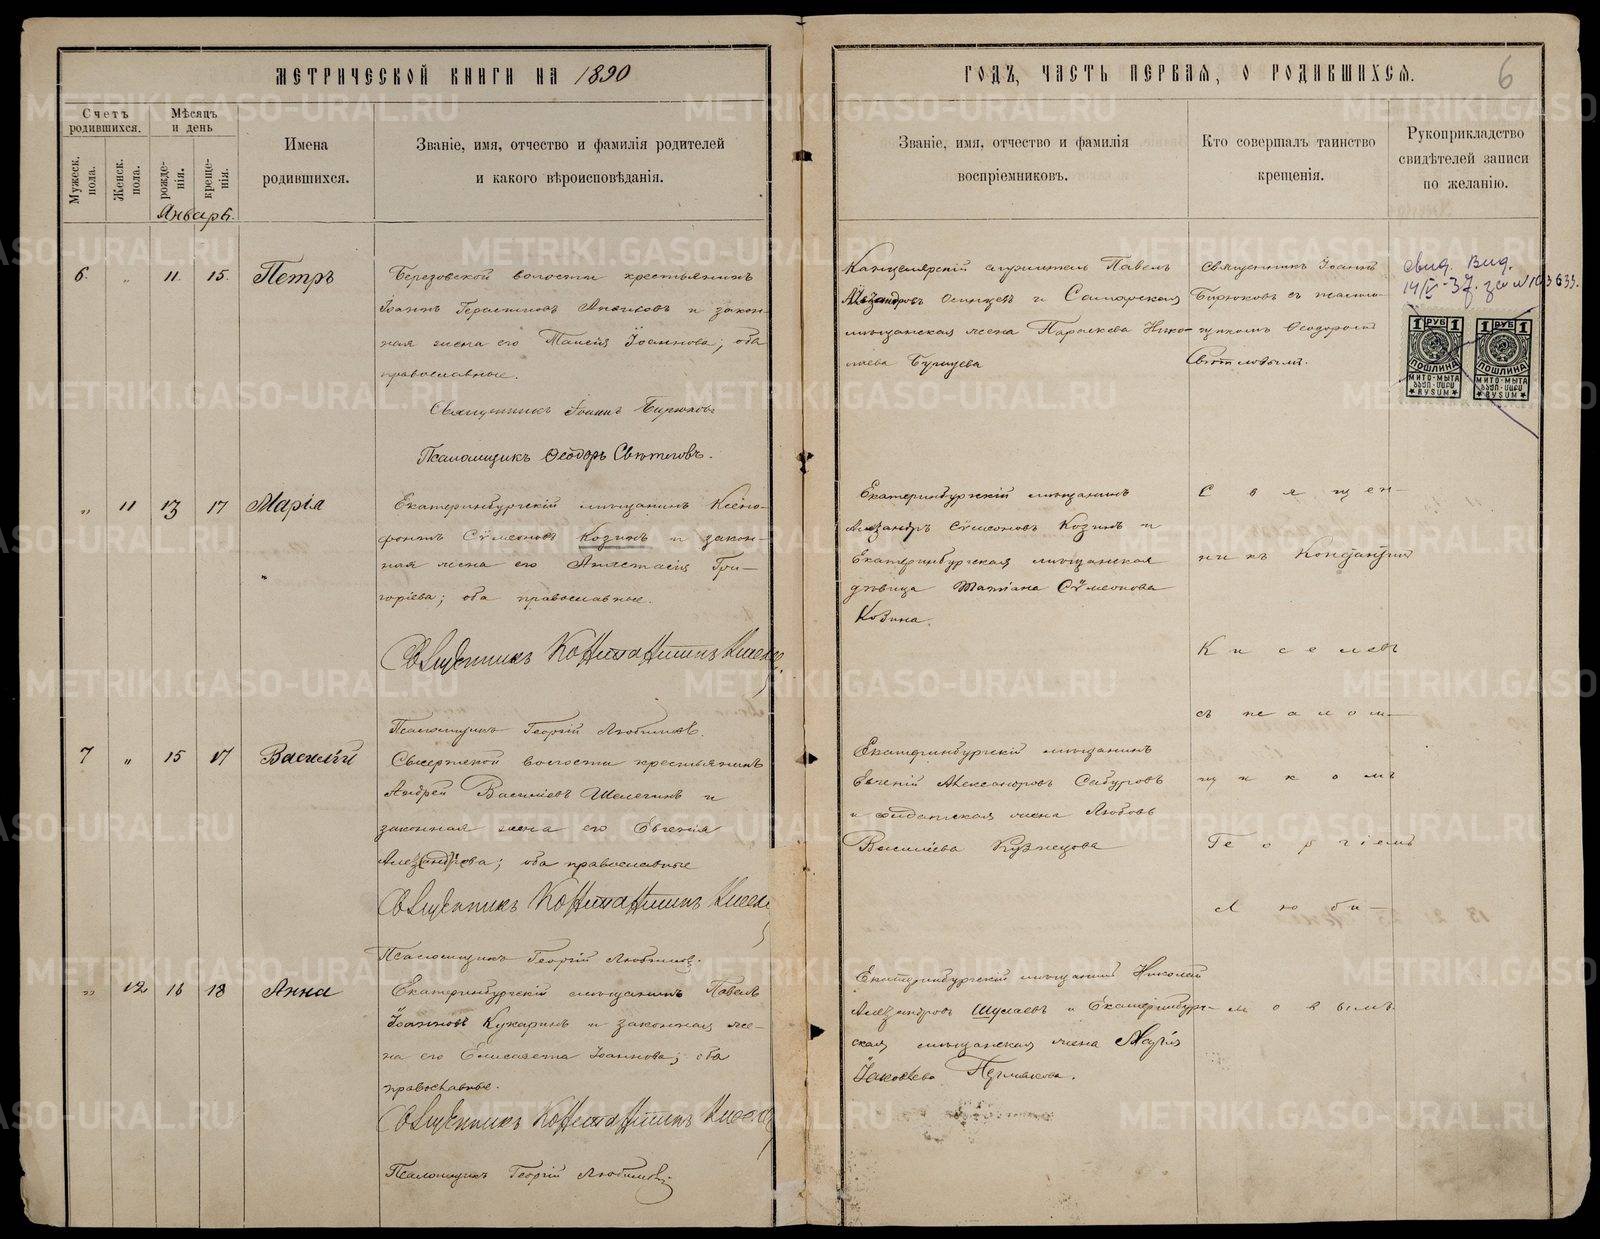 МЕТРИЧЕСКОЙ КНИГИ НА 1890
ГОДЪ, ЧАСТЬ ПЕРВАЯ, О РОДИВШИХСЯ.
6
Счетъ родившихся.
Мѣсяцъ и день
Мужеск. пола.
Женск. пола.
рожде-нія.
креще-нія.
Имена
родившихся.
Званіе, имя, отчество и фамилія родителей
и какого вѣроисповѣданія.
Званіе, имя, отчество и фамилія
воспріемниковъ.
Кто совершалъ таинство
крещенія.
Рукоприкладство
свидѣтелей записи
по желанію.
Январь.
6. " 11. 15. Петръ
Березовской волости крестьянинъ
Іоаннъ Герасимовъ и закон-
ная жена его Таисія Іоаннова; оба
православные.
Священникъ Іоаннъ Бирюковъ
Псаломщикъ Ѳеодоръ
Канцелярскій служитель Павелъ
Александровъ и Самарская
мѣщанская жена Параскева Нико-
лаева
Священникъ Іоаннъ
Бирюковъ съ псалом-
щикомъ Ѳеодоромъ
свид. выд.
14/V-37. за №
1 РУБ 1
ПОШЛИНА
МИТО-МЫТА
RYSUM
1 РУБ 1
ПОШЛИНА
МИТО-МЫТА
RYSUM
" 11 13 17 Марія
Екатеринбургскій мѣщанинъ Ксено-
фонтъ Сѵмеоновъ Козинъ и закон-
ная жена его Анастасія Гри-
горіева; оба православные.
Священникъ Константинъ Кисел
Псаломщикъ Георгій Любимовъ.
Екатеринбургскій мѣщанинъ
Александръ Сѵмеоновъ Козинъ и
Екатеринбургская мѣщанская
дѣвица Татіана Сѵмеонова
Козина.
Священ-
никъ Константинъ
Киселевъ
съ псалом-
щикомъ
Георгіемъ
Люби-
мовымъ
7 " 15 17 Василій
Сысертской волости крестьянинъ
Андрей Васильевъ Шелегинъ и
законная жена его Евгенія
Александрова; оба православные
Священникъ Константинъ Кисел
Псаломщикъ Георгій Любимовъ.
Екатеринбургскій мѣщанинъ
Евгеній Александровъ Сабуровъ
и солдатская жена Любовь
Василіева Кузнецова
" 12 16 18 Анна
Екатеринбургскій мѣщанинъ Павелъ
Іоанновъ Кукаринъ и законная же-
на его Елисавета Іоаннова; оба
православные.
Священникъ Константинъ Кисел
Псаломщикъ Георгій Любимовъ
Екатеринбургскій мѣщанинъ Николай
Александровъ Шулаевъ и Екатеринбург-
ская мѣщанская жена Марія
Іаковлева
METRIKI.GASO-URAL.RU